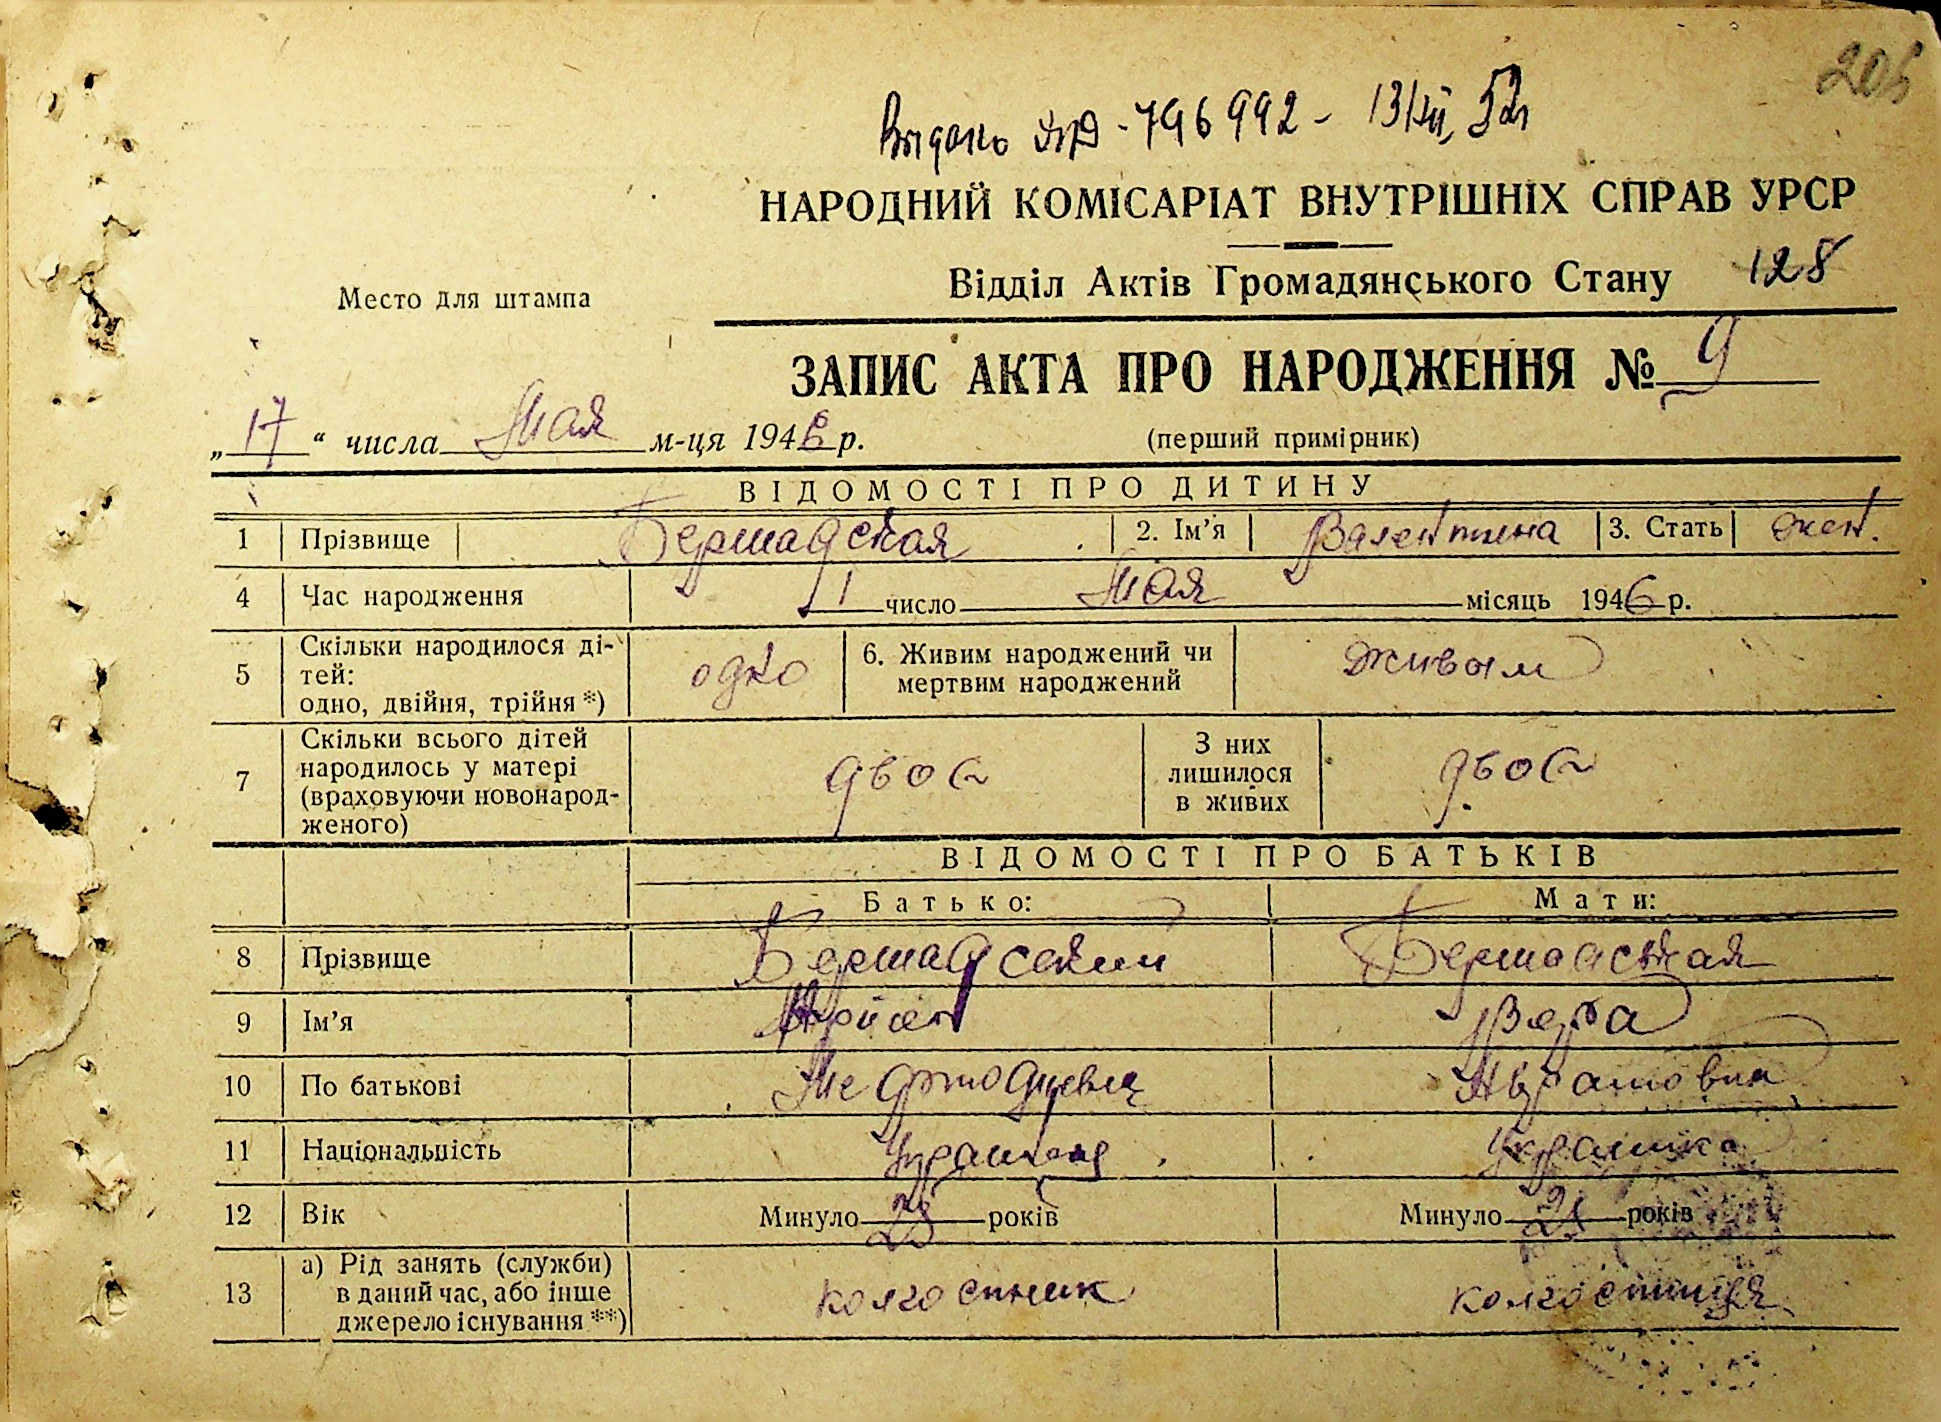 205
Видано ЯР - 796992 - 13/VII, 52г
НАРОДНИЙ КОМІСАРІАТ ВНУТРІШНІХ СПРАВ УРСР
Відділ Актів Громадянського Стану 128
Место для штампа
ЗАПИС АКТА ПРО НАРОДЖЕННЯ № 9
„17“ числа Мая м-ця 1946 р. (перший примірник)
ВІДОМОСТІ ПРО ДИТИНУ
1 Прізвище Бершадская 2. Ім’я Валентина 3. Стать жен.
4 Час народження 1 число Мая місяць 1946 р.
5 Скільки народилося ді-
тей:
одно, двійня, трійня *) одно 6. Живим народжений чи
мертвим народжений живым
7 Скільки всього дітей
народилось у матері
(враховуючи новонарод-
женого) двое З них
лишилося
в живих двое
ВІДОМОСТІ ПРО БАТЬКІВ
Батько: Мати:
8 Прізвище Бершадский Бершадская
9 Ім’я Вера
10 По батькові
11 Національність Українка
12 Вік Минуло 28 років Минуло років
13 а) Рід занять (служби)
в даний час, або інше
джерело існування **) колгоспник колгоспниця